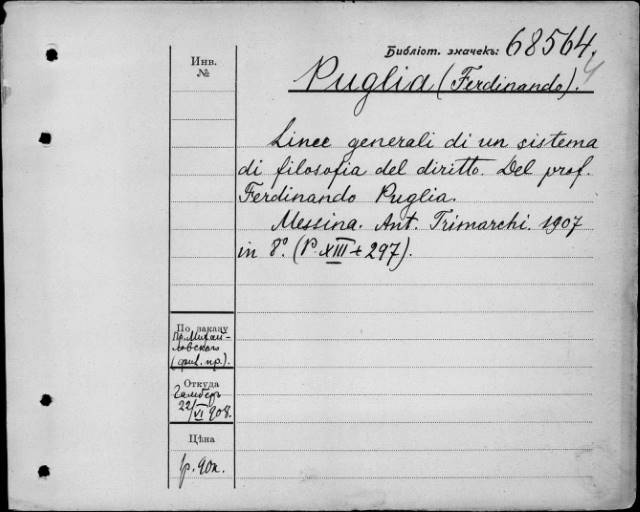 Библіот. значекъ: 68564.
4
Инв.
№
Puglia (Ferdinando).
Linee generali di un sistema
di filosofia del diritto. Del prof.
Ferdinando Puglia.
Messina. Ant. Trimarchi. 1907
in 8º. (P. XIII + 297).
По заказу
Пр. Михай-
ловскаго
(фил. пр.).
Откуда
22/VI 908.
Цѣна
р. 90к.